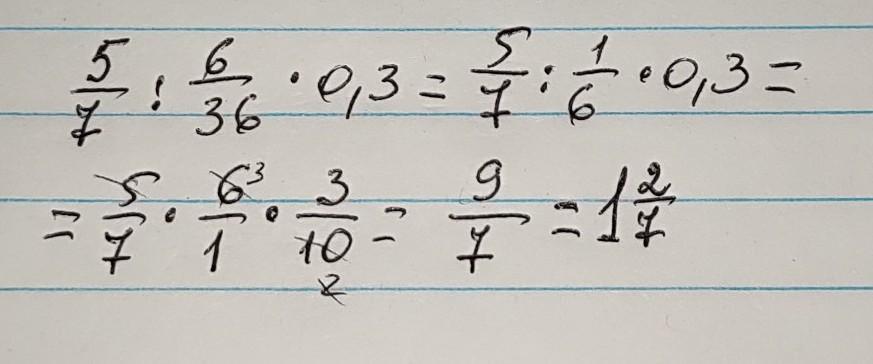 5/7 : 6/36 · 0,3 = 5/7 : 1/6 · 0,3 =
= 5/7 · 6³/1 · 3/10₂ = 9/7 = 1 2/7